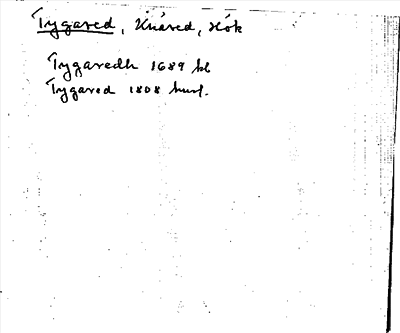 Tygared, Knäred, Hök
Tygaredh 1689 kl
Tygared 1808 husf.